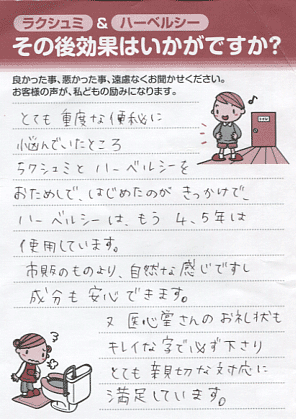 ラクシュミ & ハーベルシー
その後効果はいかがですか?
良かった事、悪かった事、遠慮なくお聞かせください。
お客様の声が、私どもの励みになります。
とても重度な便秘に
悩んでいたところ
ラクシュミとハーベルシーを
おためしで、はじめたのがきっかけで、
ハーベルシーは、もう4、5年は
使用しています。
市販のものより、自然な感じですし
成分も安心できます。
又 医心堂さんのお礼状も
キレイな字で必ず下さり
とても親切な対応に
満足しています。